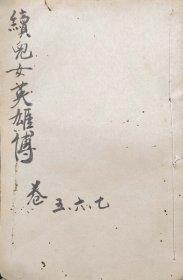 續兒女英雄傳
卷五.六.七